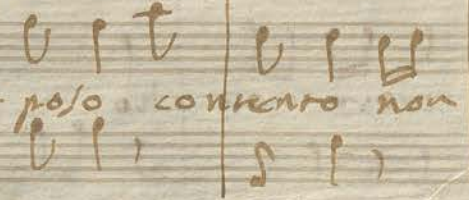 poso contento non